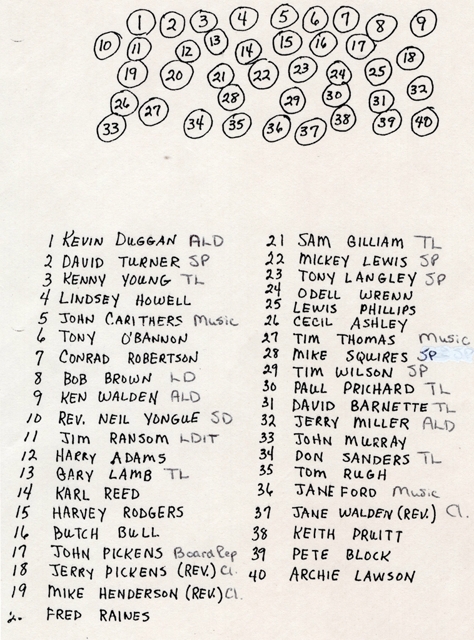 1 2 3 4 5 6 7 8 9
10 11 12 13 14 15 16 17 18
19 20 21 22 23 24 25
26 27 28 29 30 31 32
33 34 35 36 37 38 39 40
1 KEVIN DUGGAN ALD
2 DAVID TURNER SP
3 KENNY YOUNG TL
4 LINDSEY HOWELL
5 JOHN CARITHERS Music
6 TONY O'BANNON
7 CONRAD ROBERTSON
8 BOB BROWN LD
9 KEN WALDEN ALD
10 REV. NEIL YONGUE SD
11 JIM RANSOM LDIT
12 HARRY ADAMS
13 GARY LAMB TL
14 KARL REED
15 HARVEY RODGERS
16 BUTCH BULL
17 JOHN PICKENS Board Rep
18 JERRY PICKENS (REV.) Cl.
19 MIKE HENDERSON (REV.) Cl.
2. FRED RAINES
21 SAM GILLIAM TL
22 MICKEY LEWIS SP
23 TONY LANGLEY SP
24 ODELL WRENN
25 LEWIS PHILLIPS
26 CECIL ASHLEY
27 TIM THOMAS Music
28 MIKE SQUIRES SP
29 TIM WILSON SP
30 PAUL PRICHARD TL
31 DAVID BARNETTE TL
32 JERRY MILLER ALD
33 JOHN MURRAY
34 DON SANDERS TL
35 TOM RUGH
36 JANE FORD Music
37 JANE WALDEN (REV.) Cl.
38 KEITH PRUITT
39 PETE BLOCK
40 ARCHIE LAWSON